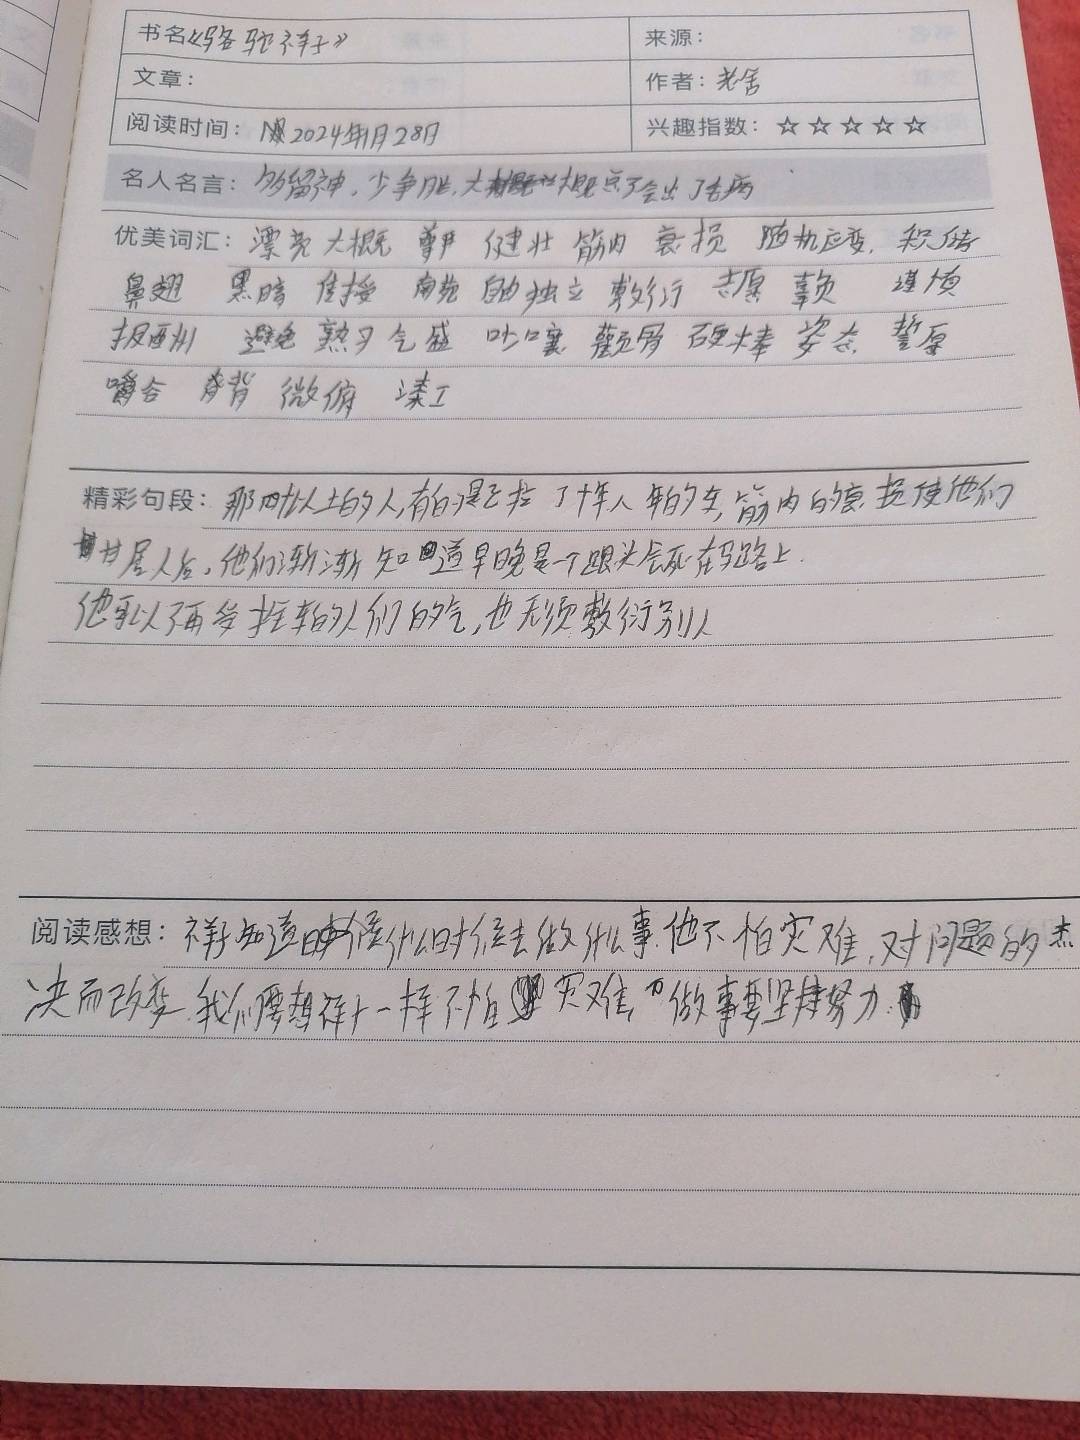 书名《骆驼祥子》 来源：
文章： 作者：老舍
阅读时间： 2024年1月28日 兴趣指数：☆☆☆☆☆
名人名言：多留神，少争胜，大概点了会出了毛病
优美词汇：漂亮 大概 健壮 筋肉 衰损 随机应变 积储
鼻翅 黑暗 自由独立 敷衍 志愿 辜负 谨慎
报酬 避免 熟习 气盛 吵嚷 颧骨 硬棒 姿态 誓愿
嚼谷 脊背 微俯 漆工
精彩句段：那四十以上的人，有的是已拉了十年八年的车，筋肉的衰损使他们
甘居人后，他们渐渐知道早晚是一个跟头会死在马路上.
他可以不再受拴车的人们的气，也无须敷衍别人
阅读感想：祥子知道什么时候去做什么事.他不怕灾难，对问题的
决而改变.我们要想祥子一样不怕灾难，做事要坚持努力.